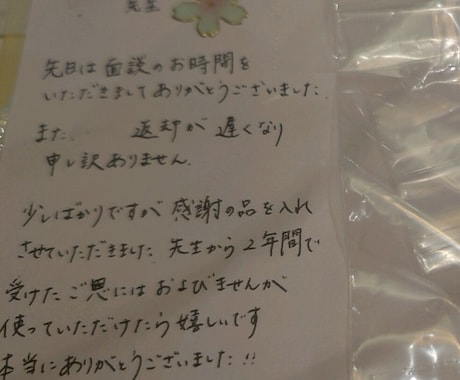 先生
先日は面談のお時間を
いただきましてありがとうございました.
また. 返却が遅くなり
申し訳ありません.
少しばかりですが感謝の品を入れ
させていただきました. 先生から2年間で
受けたご恩にはおよびませんが
使っていただけたら嬉しいです
本当にありがとうございました!!